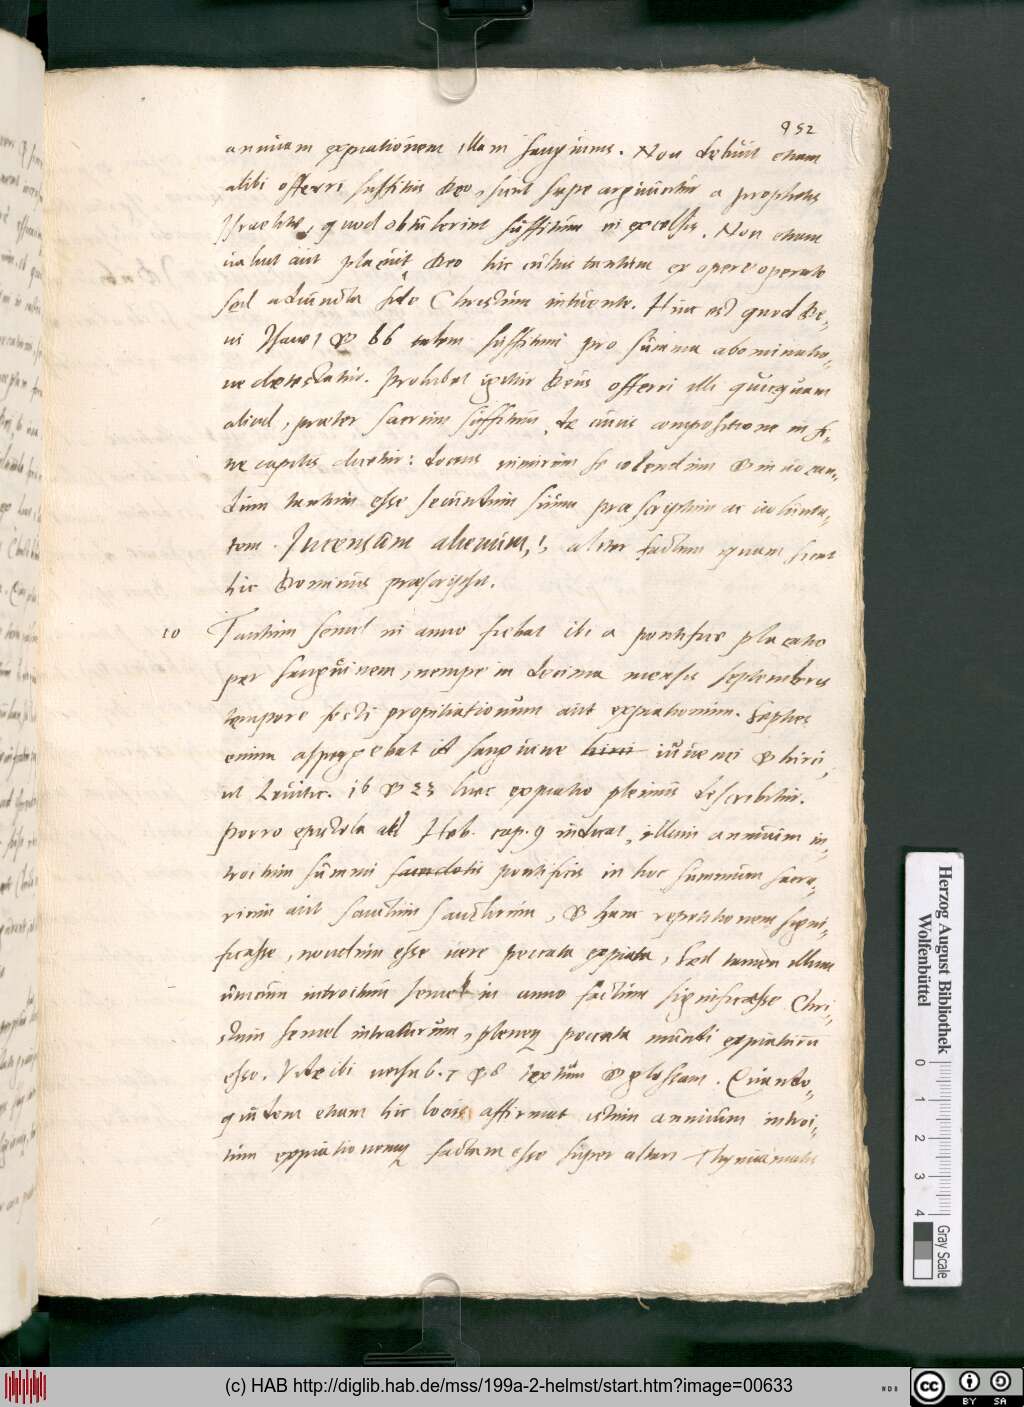 952
annuam expiationem illam sanguinis. Non debuit etiam
alibi offerri suffitus Deo, sunt saepe arguuntur a prophetis
Israelitae, quod obtulerint suffitum in excelsis. Non etiam
valuit aut placuit Deo hic cultus tantum ex opere operato
sed adiuncta fide Christum intuente. Hinc est quod De-
us Isaiae 1 & 66 talem suffitum pro summa abominatio-
ne detestatur. Prohibet igitur Deus offerri illi quicquam
aliud, praeter sacrum suffitum, de cuius compositione in fi-
ne capitis dicetur: docens nimirum se colendum & invocan-
dum tantum esse secundum suum praescriptum ac volunta-
tem. Incensum alienum, aliter factum quam sicut
hic Dominus praescripsit.
10 Tantum semel in anno fiebat ibi a pontifice placatio
per sanguinem, nempe in decima mensis septembris
tempore festi propitiationum aut expiationum. Septies
enim aspergebat id sanguine hirci iuvenci & hirci,
ut Levitic. 16 & 23 haec expiatio plenius describitur.
Porro epistola ad Heb. cap. 9 indicat, illum annuum in-
troitum summi sacerdotis pontificis in hoc summum sacra-
rium aut sanctum sanctorum, & eam repetitionem signi-
ficasse, nondum esse vere peccata expiata, sed tamen illum
unicum introitum semel in anno factum significasse Chri-
stum semel intraturum, pleneque peccata mundi expiaturum
esse. Vide ibi versu 6. 7 & 8 textum & glossam. Quando-
quidem etiam hic locus affirmat istum annuum introi-
tum expiationemque factam esse super altari Thymiamatis
Herzog August Bibliothek
Wolfenbüttel
0 1 2 3 4
Gray Scale
(c) HAB http://diglib.hab.de/mss/199a-2-helmst/start.htm?image=00633
cc BY SA